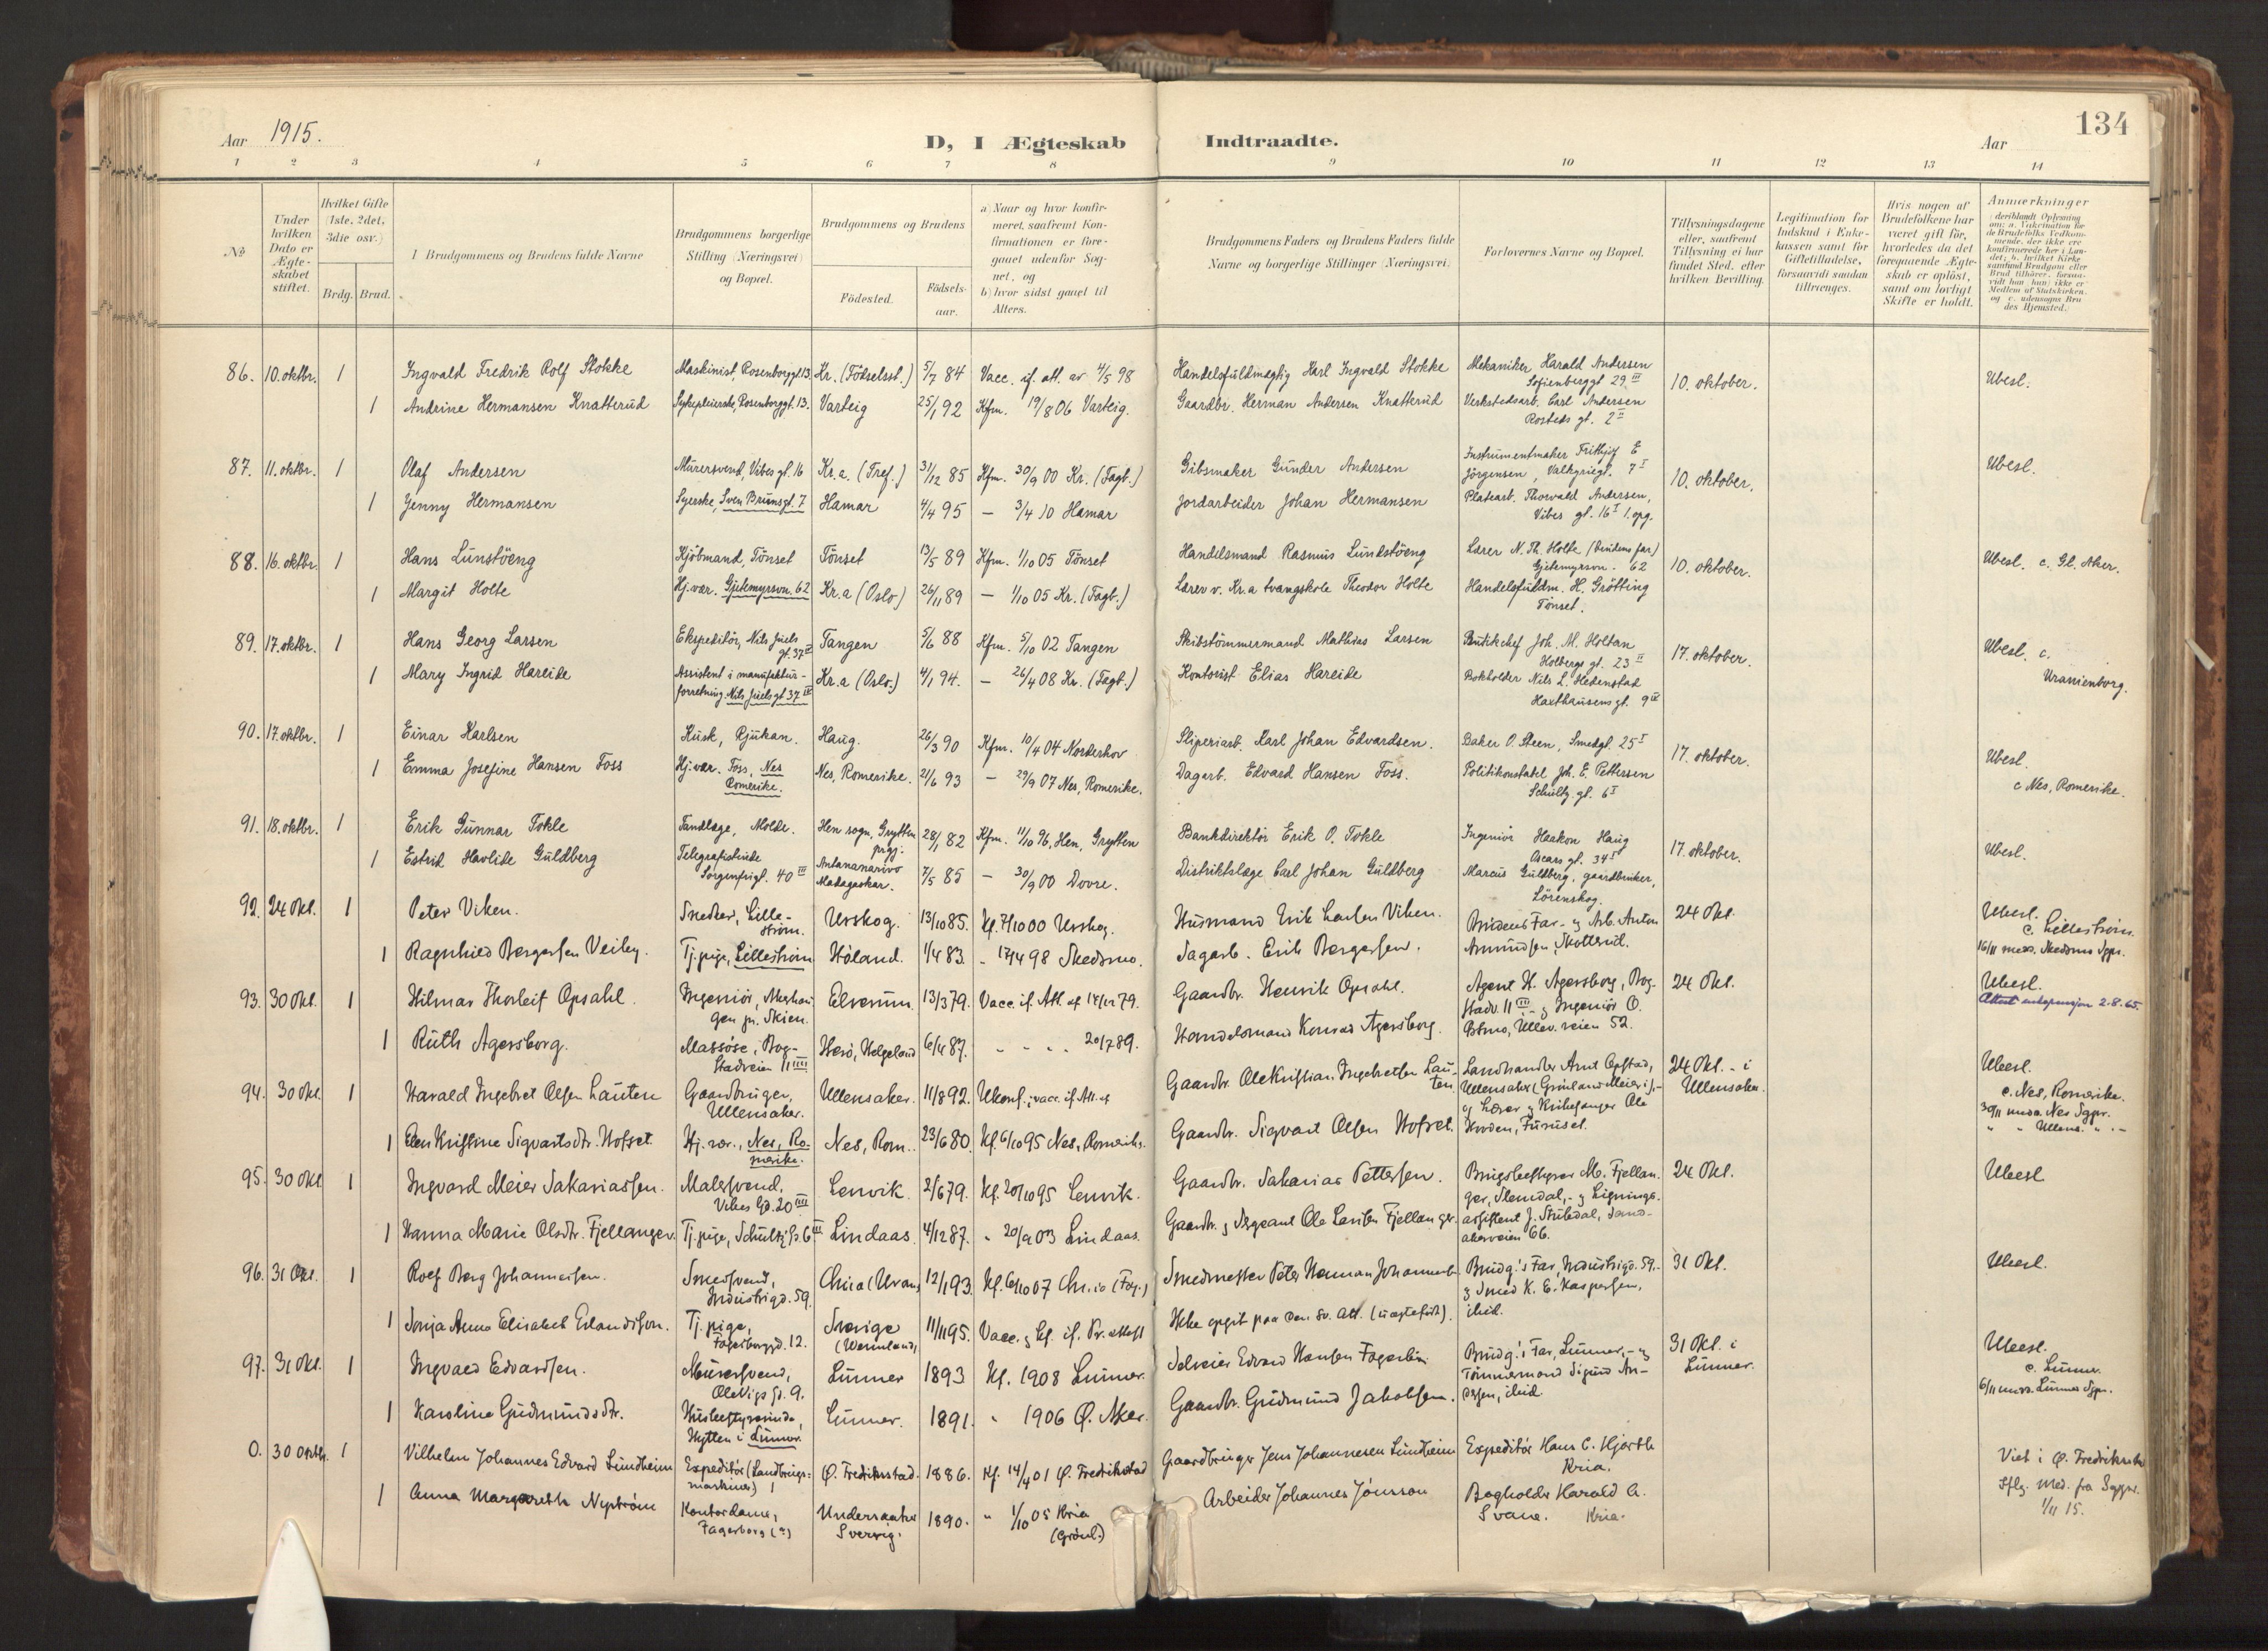 134
Aar 1915.
D, I Ægteskab Indtraadte.
Aar
1 2 3 4 5 6 7 8 9 10 11 12 13 14
No
Under hvilken Dato er Ægteskabet stiftet.
Hvilket Gifte (1ste, 2det, 3die osv.)
Brdg. Brud.
Brudgommens og Brudens fulde Navne
Brudgommens borgerlige Stilling (Næringsvei) og Bopæl.
Brudgommens og Brudens
Födested.
Födsels-aar.
a) Naar og hvor konfirmeret, saafremt Konfirmationen er foregaaet udenfor Sognet, og
b) hvor sidst gaaet til Alters.
Brudgommens Faders og Brudens Faders fulde Navne og borgerlige Stillinger (Næringsvei)
Forlovernes Navne og Bopæl.
Tillysningsdagene eller, saafremt Tillysning ei har fundet Sted, efter hvilken Bevilling.
Legitimation for Indskud i Enkekassen samt for Giftetilladelse, forsaavidt saadan tiltrænges.
Hvis nogen af Brudefolkene har været gift för, hvorledes da det foregaaende Ægteskab er oplöst, samt om lovligt Skifte er holdt.
Anmærkninger
86. 10. oktbr. 1 Ingvald Fredrik Rolf Stokke Maskinist, Rosenborggt. 13. Kr. (Födselsst.) 5/7 84 Vacc. if. att. av 4/5 98 Handelsfuldmægtig Karl Ingvald Stokke Mekaniker Harald Andersen Sofienberggt 29 III 10. oktober. Ubesl.
1 Andrine Hermansen Knatterud Sykepleierske, Rosenborggt. 13. Varteig 25/1 92 Kfm. 19/8 06 Varteig. Gaardbr. Herman Andersen Knatterud Verkstedsarb. Carl Andersen Rosteds gt. 2 II
87. 11. oktbr. 1 Olaf Andersen Murersvend, Vibes gt. 16 Kr.a. (Tref.) 31/12 85 Kfm. 30/9 00 Kr. (Fagb.) Gibsmaker Gunder Andersen Instrumentmaker Frithjof E Jörgensen, Valkyriegt. 7 I 10. oktober. Ubesl.
1 Jenny Hermansen Syerske, Sven Brunsgt. 7 Hamar 4/4 95 — 3/4 10 Hamar Jordarbeider Johan Hermansen Platearb. Thorvald Andersen, Vibes gt. 16 I 1. opg.
88. 16. oktbr. 1 Hans Lunstöeng Kjöbmand, Tönset Tönset 13/5 89 Kfm. 1/10 05 Tönset Handelsmand Rasmus Lundstöeng Lærer N. Th. Holte (brudens far) Gjetemyrsvn. 62 10. oktober. Ubesl. c. Gl. Aker.
1 Margit Holte Hj.vær. Gjetemyrsvn. 62 Kr.a (Oslo) 26/11 89 — 1/10 05 Kr. (Fagb.) Lærer v. Kr.a tvangskole Theodor Holte Handelsfuldm. H. Grötting Tönset.
89. 17. oktbr. 1 Hans Georg Larsen Ekspeditör, Nils Juels gt. 37 II Tangen 5/6 88 Kfm. 5/10 02 Tangen Skibstömmermand Mathias Larsen Butikchef Joh. M. Holtan Holbergs gt. 23 II 17. oktober. Ubesl. c. Uranienborg.
1 Mary Ingrid Hareide Assistent i manufakturforretning Nils Juels gt 37 III Kr.a (Oslo.) 4/1 94. — 26/4 08 Kr. (Fagb.) Kontorist Elias Hareide Bokholder Nils L. Hedenstad Haxthausens gt. 9 IV
90. 17. oktbr. 1 Einar Karlsen Kusk, Rjukan. Haug. 26/3 90 Kfm. 10/4 04 Norderhov Sliperiarb. Karl Johan Edvardsen. Baker O. Steen, Smedgt. 25 I 17. oktober. Ubesl. c Nes, Romerike.
1 Emma Josefine Hansen Foss Hj.vær. Foss, Nes Romerike. Nes, Romerike. 21/6 93 — 29/9 07 Nes, Romerike. Dagarb. Edvard Hansen Foss. Politikonstabel Joh. E. Pettersen Schultz. gt. 6 I
91. 18. oktbr. 1 Erik Gunnar Tokle Tandlæge, Molde. Hen sogn, Grytten prgj. 28/1 82 Kfm. 11/10 96, Hen, Grytten Bankdirektör Erik O. Tokle Ingeniör Haakon Haug Oscars gt. 34 I 17. oktober. Ubesl.
1 Estrid Havlide Guldberg Telegrafistinde Sorgenfrigt. 40 III Antananarivo Madagaskar. 7/5 85 — 30/9 00 Dovre. Distriktslæge Carl Johan Guldberg Marcus Guldberg, gaardbruker, Lörenskog.
92. 24 Okt. 1 Peter Viken. Snedker, Lilleström. Urskog. 13/10 85. Kf. 7/10 00 Urskog. Husmand Erik Larsen Viken. Brudens Far - og Arb. Anton Amundsen, Skotterud. 24 Okt. Ubesl. c. Lilleström. 16/11 medd. Skedsmo Sgpr.
1 Ragnhild Bergersen Veiby. Tj.pige, Lilleström Höland. 1/4 83. - 17/4 98 Skedsmo. Sagarb. Erik Bergersen.
93. 30 Okt. 1 Hilmar Thorleif Opsahl. Ingeniör, pr. Skien. Elverum. 13/3 79. Vacc. if. Att. af 14/12 79. Gaardbr. Henrik Opsahl. Agent H. Agersborg, Bogstadv. 11 III - og Ingeniör O. Ullev.veien 52. 24 Okt. Ubesl. 2.8.65.
1 Ruth Agersborg. Massöse, Bogstadveien 11 III Herö, Helgeland 6/4 87. - - - - 20/7 89. Handelsmand Konrad Agersborg.
94. 30 Okt. 1 Harald Ingebret Olsen Lauten Gaardbruger, Ullensaker. Ullensaker. 11/8 92. Ukonf.; vacc. if. Att. af Gaardbr. Ole Kristian Ingebretsen Lauten Landhandler Arnt Opstad, Ullensaker og Lærer og Kirkesanger Ole Hvoden, Furuset. 24 Okt. - i Ullensaker. Ubesl. c. Nes, Romerike. 30/11 medd. Nes Sgpr. " " Ullens. " . -
1 Ellen Kristine Sigvartsdtr. Hofset. Hj. vær., Nes, Romerike. Nes, Rom. 23/6 80. Kf. 6/10 95 Nes, Romerike. Gaardbr. Sigvart Olsen Hofset.
95. 30 Okt 1 Ingvard Meier Sakariassen. Malersvend, Vibes Gd. 20 III Lenvik. 2/6 79. Kf. 20/10 95 Lenvik. Gaardbr. Sakarias Pettersen. Brugsbestyrer M. Fjellanger, Slemdal, - og Ligningsassistent J. Stubdal, Sandakerveien 66. 24 Okt. Ubesl.
1 Hanna Marie Olsdtr. Fjellanger. Tj.pige, Schultz. G. 6 III Lindaas. 4/12 87. - 20/9 03 Lindaas. Gaardbr. og Sergeant Ole Larsen Fjellanger.
96. 31 Okt. 1 Rolf Berg Johannesen. Smedsvend, Industrigd. 59. Chria (Uran.) 12/1 93. Kf. 6/10 07 Chr.ia (Fag.) Smedmester Peter Herman Johannesen Brudg.'s Far, Industrigd. 59. - og Smed K. E. Kaspersen, ibid. 31 Okt. Ubesl.
1 Sonja Anna Elisabet Erlandsson. Tj.pige, Fagerborggd. 12. Sverige (Wermland) 11/11 95. Vacc. og kf. if. Pr.attest Ikke opgit paa den sv. Att. (uægtefödt).
97. 31 Okt. 1 Ingvald Edvardsen. Murersvend, Ole Vigs Gd. 9. Lunner 1893 Kf. 1908 Lunner. Selveier Edvard Hansen Fagerlien Brudg.'s Far, Lunner, - og Tömmermand Sigurd Andersen, ibid. 31 Okt. i Lunner. Ubesl. c. Lunner. 6/11 medd. Lunner Sgpr.
1 Karoline Gudmundsdtr. Husbestyrerinde, Hytten i Lunner. Lunner. 1891. - 1906 Ö. Aker. Gaardbr. Gudmund Jakobsen.
0. 30 Oktbr. 1 Vilhelm Johannes Edvard Lundheim Expeditör (Landbrugsmaskiner) Ø. Fredriksstad. 1886. Kf. 14/4 01 Ø. Fredrikstad Gaardbruger Jens Johannesen Lundheim Expeditör Hans C. Hjorth Kria. Viet i Ø. Fredrikstad Iflg. Med. fra Sogpr. 1/11 15.
1 Anna Margareth Nyström Kontordame, Fagerborg (a) Undersaaker Sverrig. 1890. " 1/10 05 Kria (Grönl.) Arbeider Johannes Jönsson Bogholder Harald A. Svane. Kria.